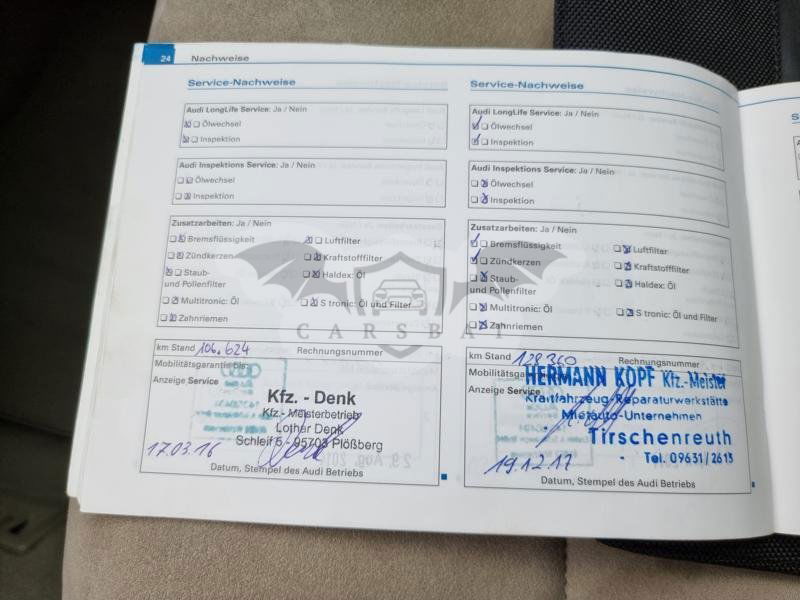 24 Nachweise
Service-Nachweise
Audi LongLife Service: Ja / Nein
Ölwechsel
Inspektion
Audi Inspektions Service: Ja / Nein
Ölwechsel
Inspektion
Zusatzarbeiten: Ja / Nein
Bremsflüssigkeit
Luftfilter
Zündkerzen
Kraftstofffilter
Staub-
und Pollenfilter
Haldex: Öl
Multitronic: Öl
S tronic: Öl und Filter
Zahnriemen
km Stand 106.624 Rechnungsnummer
Mobilitätsgarantie bis:
Anzeige Service
Kfz. - Denk
Kfz.- Meisterbetrieb
Lothar Denk
Schleif 6 - 95703 Plößberg
17.03.16
Datum, Stempel des Audi Betriebs
Service-Nachweise
Audi LongLife Service: Ja / Nein
Ölwechsel
Inspektion
Audi Inspektions Service: Ja / Nein
Ölwechsel
Inspektion
Zusatzarbeiten: Ja / Nein
Bremsflüssigkeit
Luftfilter
Zündkerzen
Kraftstofffilter
Staub-
und Pollenfilter
Haldex: Öl
Multitronic: Öl
S tronic: Öl und Filter
Zahnriemen
km Stand 128.360 Rechnungsnummer
Mobilitätsgarantie
Anzeige Service
HERMANN KOPF Kfz.-Meister
Kraftfahrzeug-Reparaturwerkstätte
Mietauto-Unternehmen
Tirschenreuth
Tel. 09631/2613
19.12.17
Datum, Stempel des Audi Betriebs
CARSBAT